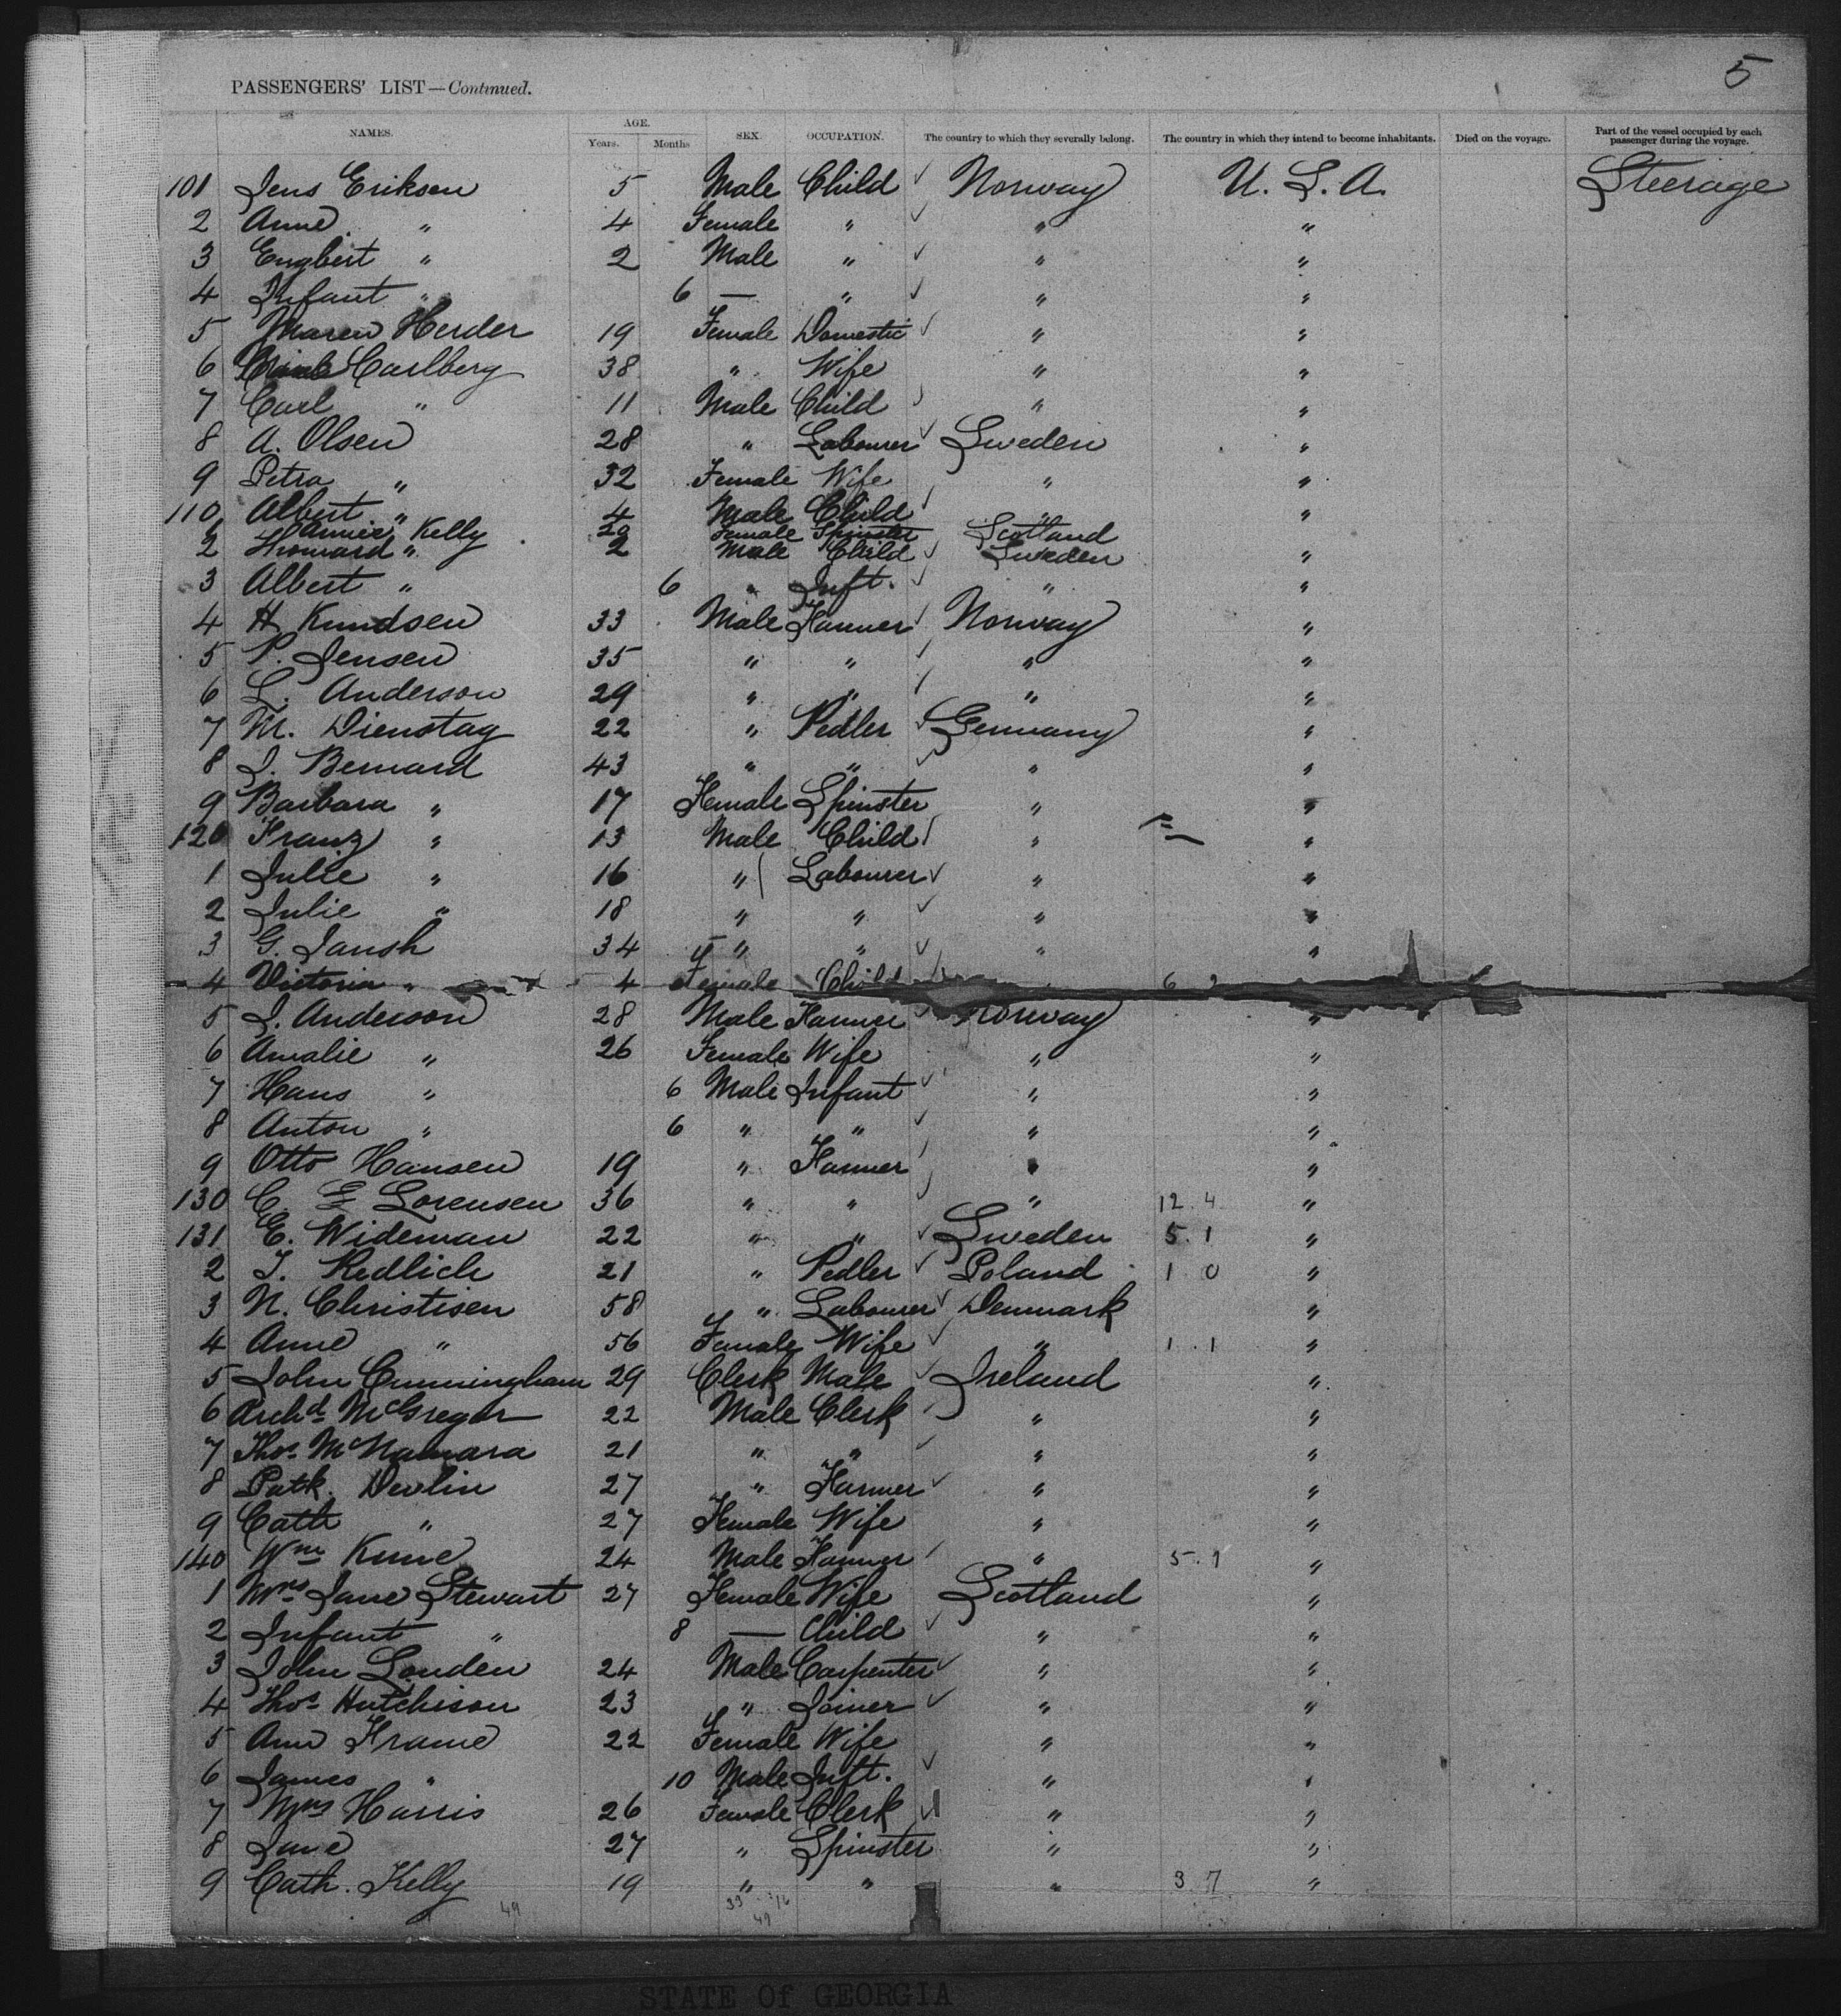 5
PASSENGERS' LIST—Continued.
NAMES. AGE. Years. Months SEX. OCCUPATION. The country to which they severally belong. The country in which they intend to become inhabitants. Died on the voyage. Part of the vessel occupied by each passenger during the voyage.
101 Jens Eriksen 5 Male Child ✓ Norway U. S. A. Steerage
2 Anne " 4 Female " ✓ " "
3 Engbert " 2 Male " ✓ " "
4 Infant " 6 — " ✓ " "
5 Maren Herder 19 Female Domestic ✓ " "
6 Carlberg 38 " Wife " "
7 Carl " 11 Male Child ✓ " "
8 A. Olsen 28 " Labourer ✓ Sweden "
9 Petra " 32 Female Wife " "
110 Albert " 4 Male Child ✓ " "
1 Annie Kelly 29 Female Spinster Scotland
2 Howard " 2 Male Child ✓ Sweden "
3 Albert " 6 " Inft. ✓ " "
4 H Knudsen 33 Male Farmer ✓ Norway "
5 P. Jensen 35 " " ✓ " "
6 L. Anderson 29 " " ✓ " "
7 M. Dienstag 22 " Pedler ✓ Germany "
8 J. Bernard 43 " " ✓ " "
9 Barbara " 17 Female Spinster " "
120 Franz " 13 Male Child ✓ " "
1 Julie " 16 " Labourer ✓ " "
2 Julie " 18 " " ✓ " "
3 G. Jansh 34 " " ✓ " "
4 Victoria " 4 Female Child
5 J. Anderson 28 Male Farmer ✓ Norway "
6 Amalie " 26 Female Wife " "
7 Hans " 6 Male Infant ✓ " "
8 Anton " 6 " " ✓ " "
9 Otto Hansen 19 " Farmer ✓ " "
130 C. E Lorensen 36 " " ✓ " 12. 4 "
131 E. Wideman 22 " " ✓ Sweden 5. 1 "
2 J. Redlich 21 " Pedler ✓ Poland 1 0 "
3 N. Christisen 58 " Labourer ✓ Denmark "
4 Anne " 56 Female Wife ✓ " 1. 1 "
5 John Cunningham 29 Clerk Male ✓ Ireland "
6 Archd McGregor 22 Male Clerk ✓ " "
7 Thos McNamara 21 " " ✓ " "
8 Patk. Devlin 27 " Farmer ✓ " "
9 Cath " 27 Female Wife " "
140 Wm 24 Male Farmer ✓ " 5. 1 "
1 Mrs Jane Stewart 27 Female Wife Scotland "
2 Infant " 8 — Child ✓ " "
3 John Louden 24 Male Carpenter ✓ " "
4 Thos Hutchison 23 " Joiner ✓ " "
5 Ann Frame 22 Female Wife " "
6 James " 10 Male Inft. ✓ " "
7 Mrs Harris 26 Female Clerk ✓ " "
8 Jane 27 " Spinster " "
9 Cath. Kelly 19 " " " 3 7 "
49 33 16
49
STATE Of GEORGIA